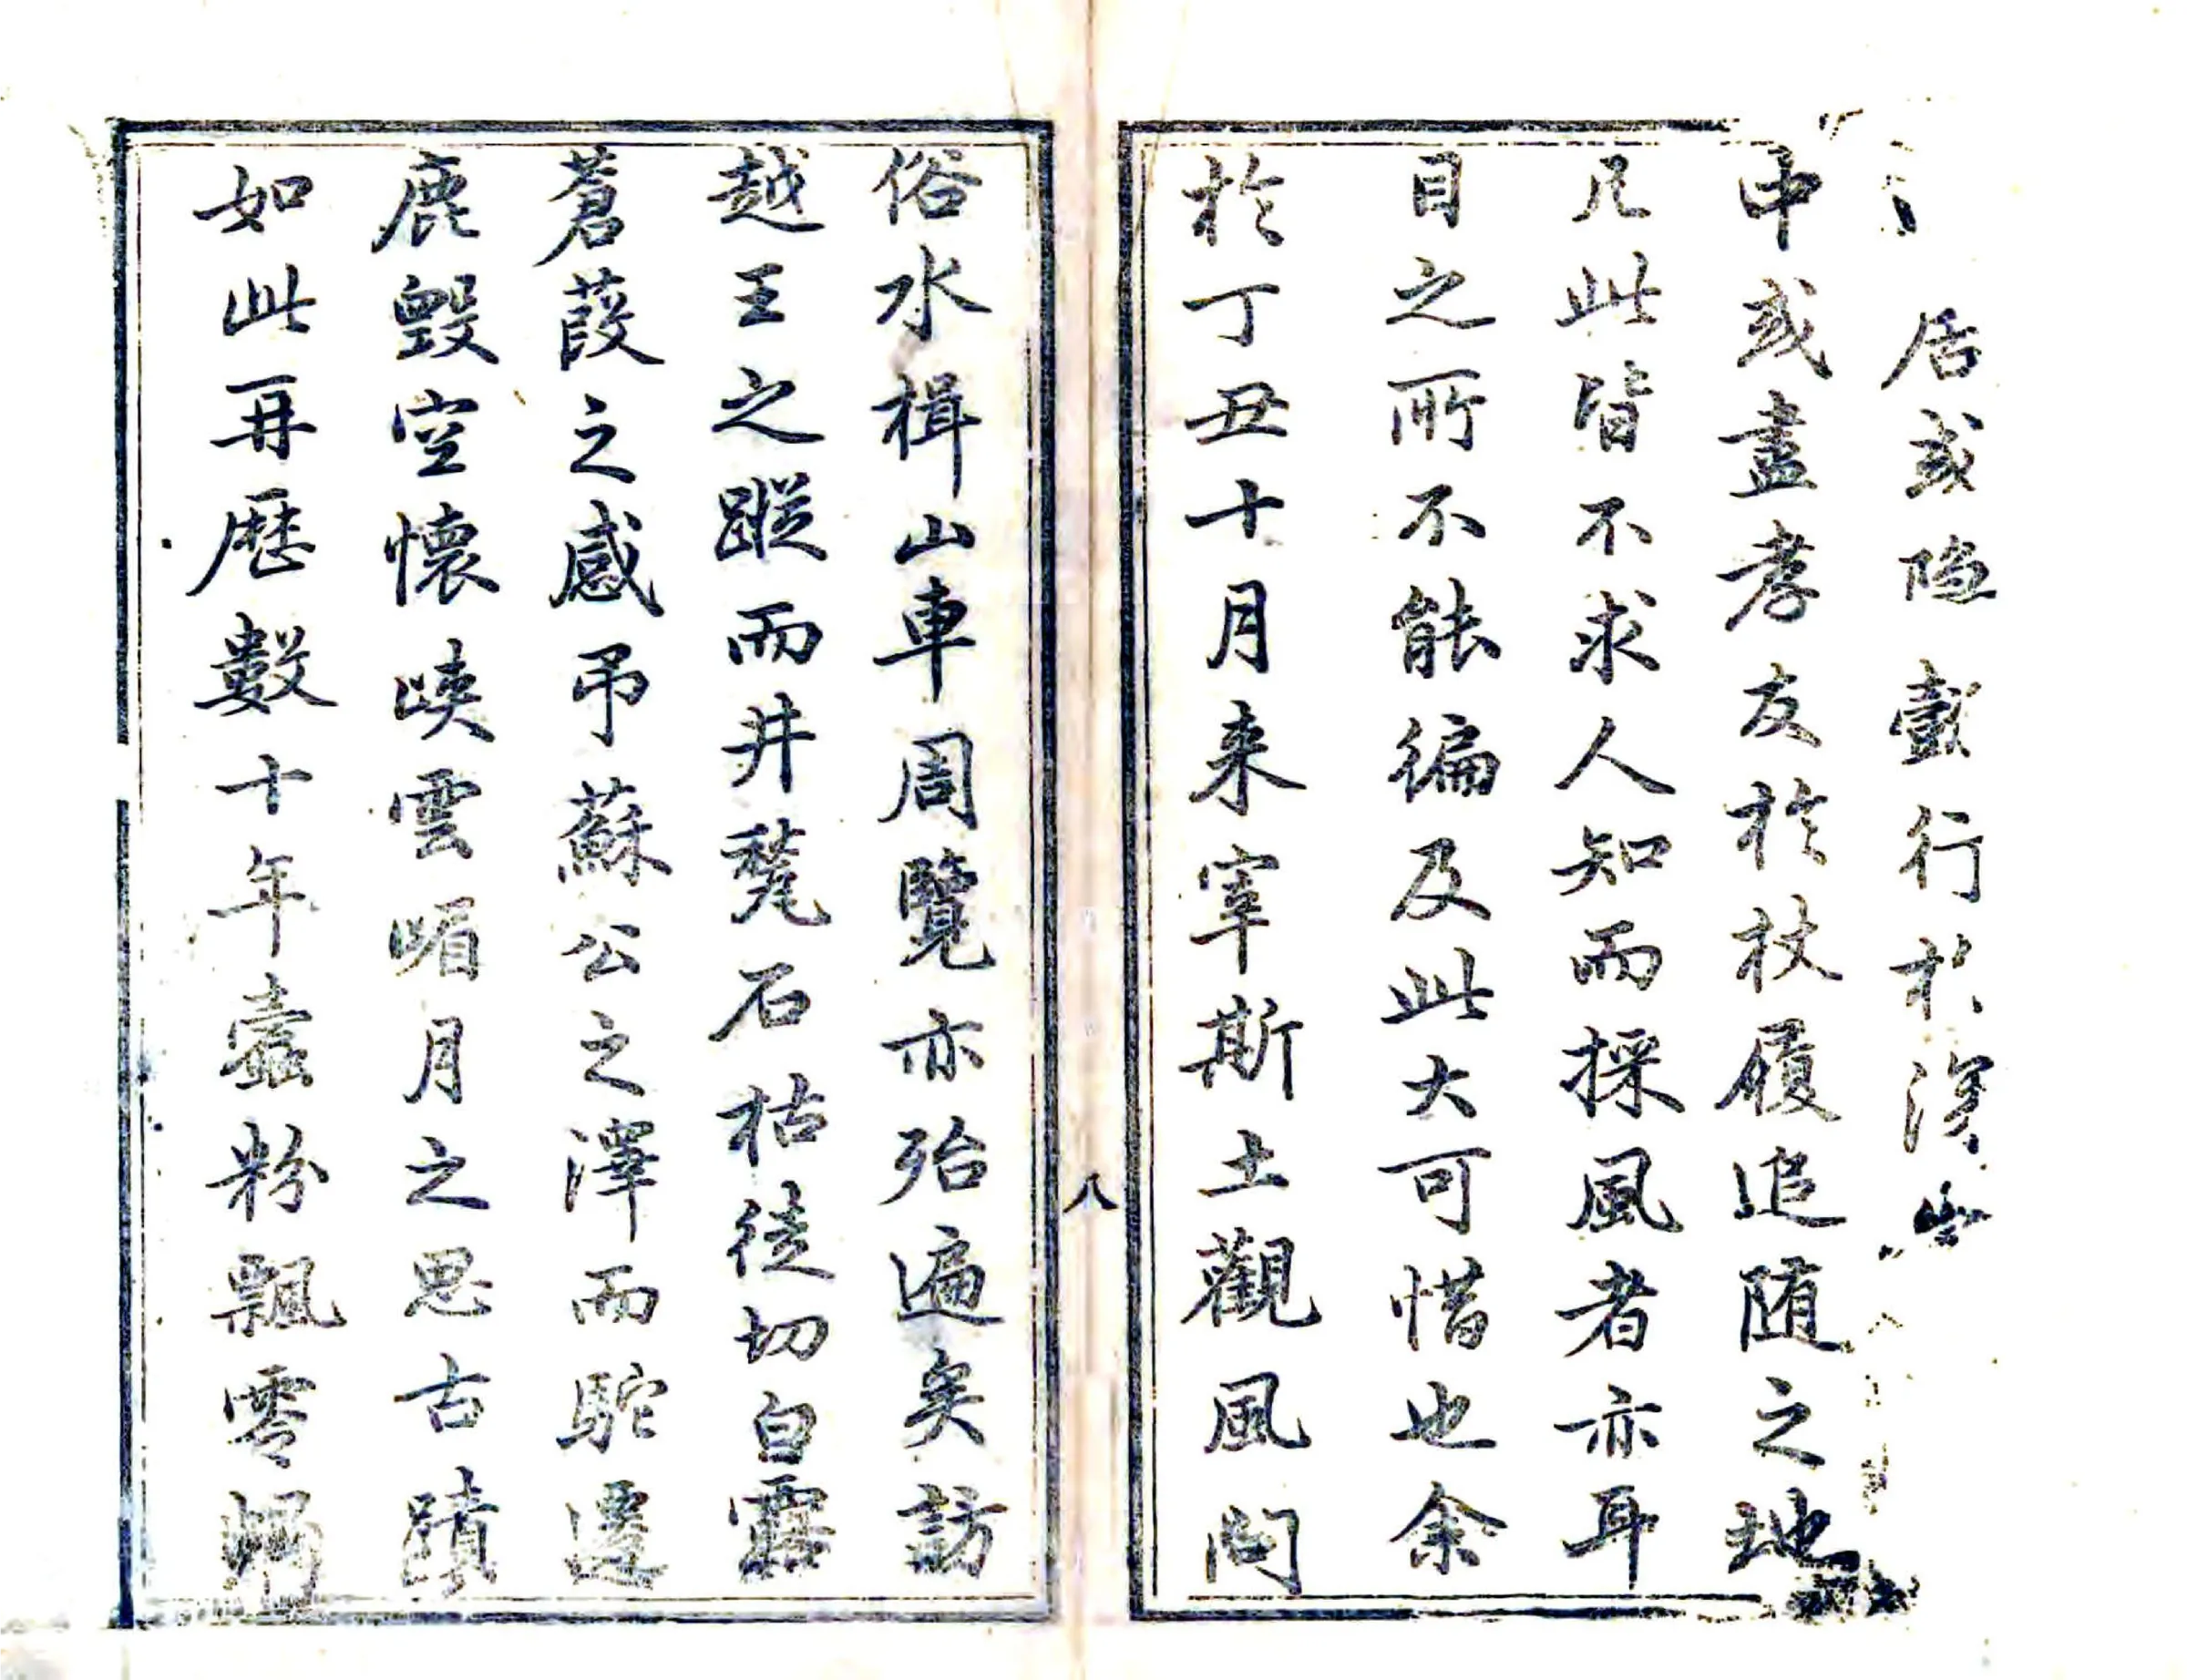 居或隐戲行於深
中或盡孝友於杖履追随之地
凡此皆不求人知而採風者亦耳
目之所不能徧及此大可惜也余
於丁丑十月来宰斯土觀風問
八
俗水楫山車周覽亦殆遍矣訪
越王之蹤而井甃石枯徒切白露
蒼葭之感吊蘇公之澤而駝遷
鹿毁空懷峡雲嵋月之思古蹟
如此再歴數十年蠹粉飄零